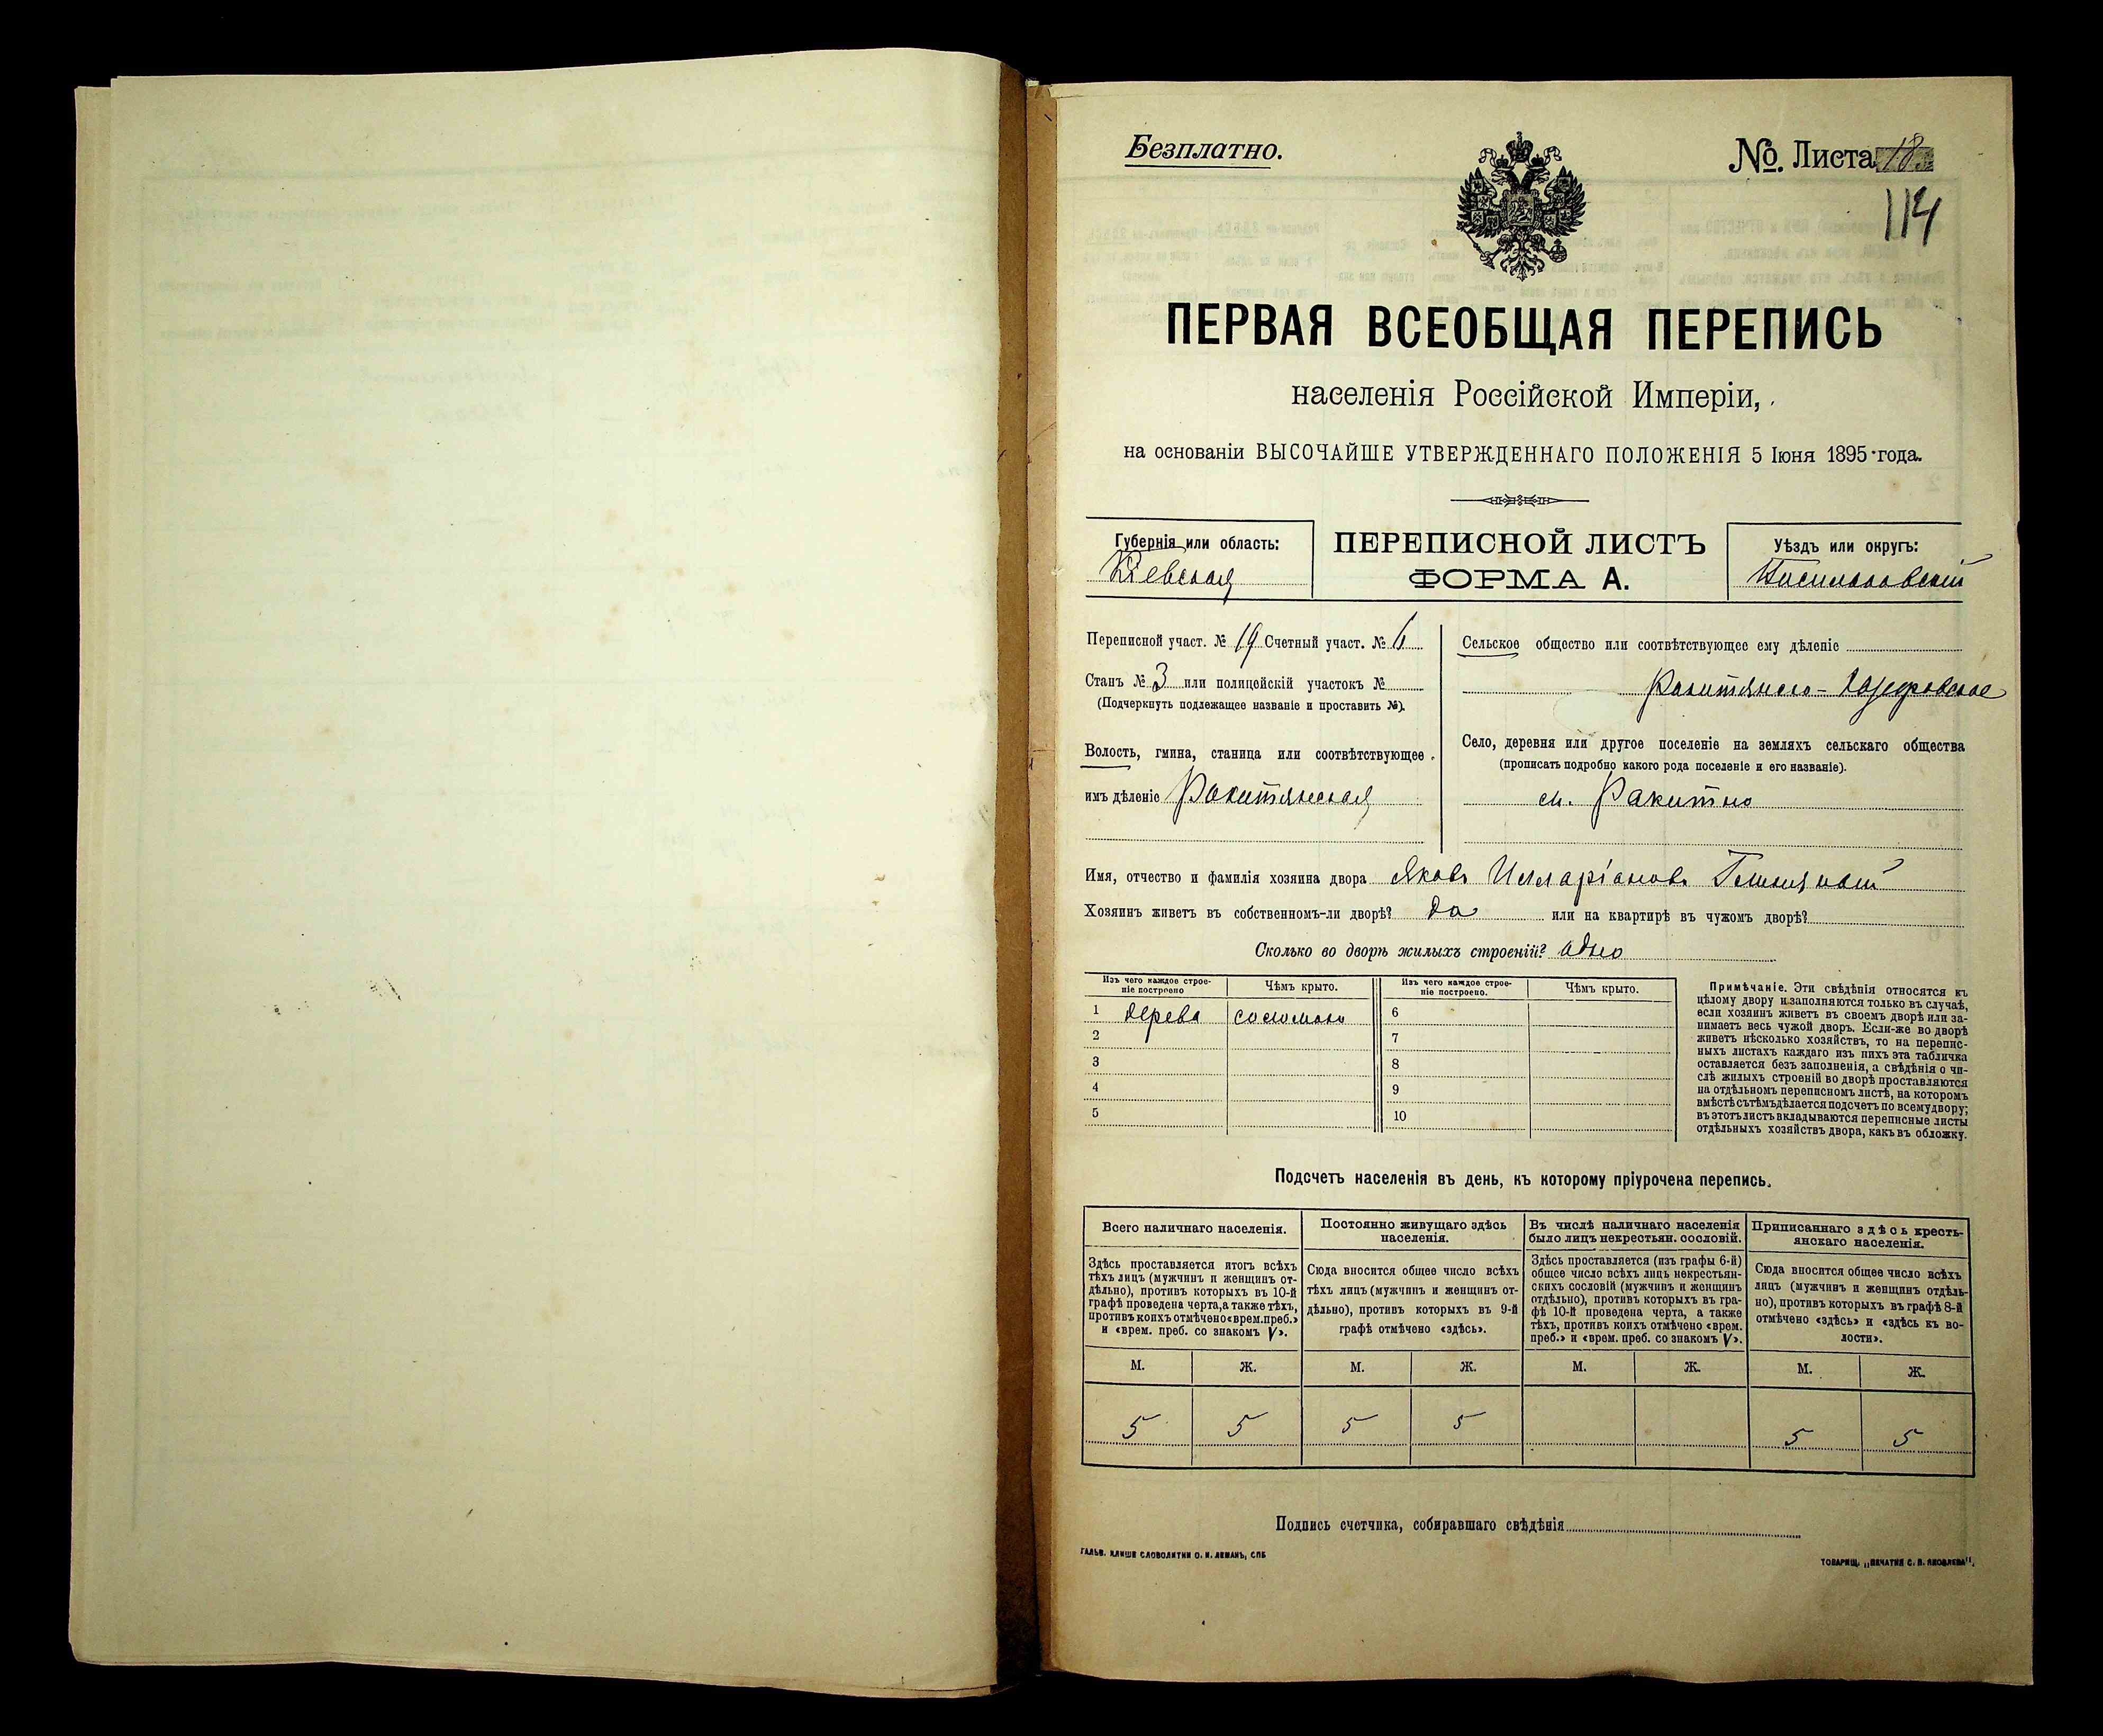 Безплатно.
№ Листа 18
114
ПЕРВАЯ ВСЕОБЩАЯ ПЕРЕПИСЬ
населенія Россійской Имперіи,
на основаніи ВЫСОЧАЙШЕ УТВЕРЖДЕННАГО ПОЛОЖЕНІЯ 5 Іюня 1895 года.
Губернія или область:
Кіевская
ПЕРЕПИСНОЙ ЛИСТЪ
ФОРМА А.
Уѣздъ или округъ:
Переписной участ. № 19 Счетный участ. № 6
Станъ № 3 или полицейскій участокъ №
(Подчеркнуть подлежащее названіе и проставить №).
Волость, гмина, станица или соотвѣтствующее
имъ дѣленіе Ракитянская
Сельское общество или соотвѣтствующее ему дѣленіе
Село, деревня или другое поселеніе на земляхъ сельскаго общества
(прописать подробно какого рода поселеніе и его названіе).
м. Ракитно
Имя, отчество и фамилія хозяина двора Яковъ Илларіановъ
Хозяинъ живетъ въ собственномъ-ли дворѣ? да или на квартирѣ въ чужомъ дворѣ?
Сколько во дворѣ жилыхъ строеній? одно
Изъ чего каждое строе-
ніе построено
Чѣмъ крыто.
Изъ чего каждое строе-
ніе построено.
Чѣмъ крыто.
1 дерева соломою 6
2 7
3 8
4 9
5 10
Примѣчаніе. Эти свѣдѣнія относятся къ
цѣлому двору и заполняются только въ случаѣ,
если хозяинъ живетъ въ своемъ дворѣ или за-
нимаетъ весь чужой дворъ. Если-же во дворѣ
живетъ нѣсколько хозяйствъ, то на перепис-
ныхъ листахъ каждаго изъ нихъ эта табличка
оставляется безъ заполненія, а свѣдѣнія о чи-
слѣ жилыхъ строеній во дворѣ проставляются
на отдѣльномъ переписномъ листѣ, на которомъ
вмѣстѣ съ тѣмъ дѣлается подсчетъ по всему двору;
въ этотъ листъ вкладываются переписные листы
отдѣльныхъ хозяйствъ двора, какъ въ обложку.
Подсчетъ населенія въ день, къ которому пріурочена перепись.
Всего наличнаго населенія.
Здѣсь проставляется итогъ всѣхъ
тѣхъ лицъ (мужчинъ и женщинъ от-
дѣльно), противъ которыхъ въ 10-й
графѣ проведена черта, а также тѣхъ,
противъ коихъ отмѣчено «врем. преб.»
и «врем. преб. со знакомъ V».
Постоянно живущаго здѣсь
населенія.
Сюда вносится общее число всѣхъ
тѣхъ лицъ (мужчинъ и женщинъ от-
дѣльно), противъ которыхъ въ 9-й
графѣ отмѣчено «здѣсь».
Въ числѣ наличнаго населенія
было лицъ некрестьян. сословій.
Здѣсь проставляется (изъ графы 6-й)
общее число всѣхъ лицъ некрестьян-
скихъ сословій (мужчинъ и женщинъ
отдѣльно), противъ которыхъ въ гра-
фѣ 10-й проведена черта, а также
тѣхъ, противъ коихъ отмѣчено «врем.
преб.» и «врем. преб. со знакомъ V».
Приписаннаго здѣсь кресть-
янскаго населенія.
Сюда вносится общее число всѣхъ
лицъ (мужчинъ и женщинъ отдѣль-
но), противъ которыхъ въ графѣ 8-й
отмѣчено «здѣсь» и «здѣсь къ во-
лости».
М. Ж. М. Ж. М. Ж. М. Ж.
5 5 5 5 5 5
Подпись счетчика, собиравшаго свѣдѣнія
ГАЛЬВ. КЛИШЕ СЛОВОЛИТНИ О. И. ЛЕМАНЪ, СПБ
ТОВАРИЩ. „ПЕЧАТНЯ С. П. ЯКОВЛЕВА".